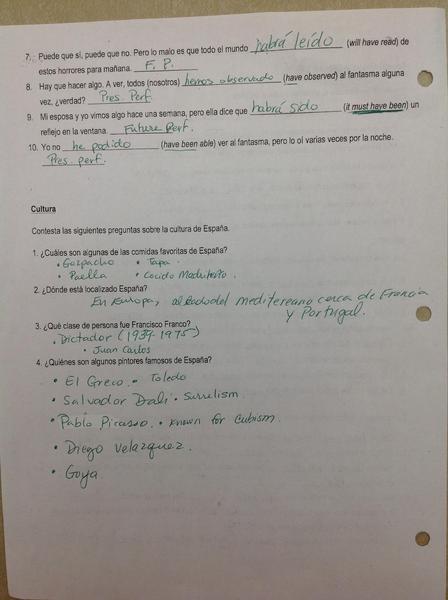 7. Puede que sí, puede que no. Pero lo malo es que todo el mundo habrá leído (will have read) de
estos horrores para mañana. F. P.
8. Hay que hacer algo. A ver, todos (nosotros) hemos observado (have observed) al fantasma alguna
vez, ¿verdad? Pres Perf.
9. Mi esposa y yo vimos algo hace una semana, pero ella dice que habrá sido (it must have been) un
reflejo en la ventana. Future Perf.
10. Yo no he podido (have been able) ver al fantasma, pero lo oí varias veces por la noche.
Pres. perf.
Cultura
Contesta las siguientes preguntas sobre la cultura de España.
1. ¿Cuáles son algunas de las comidas favoritas de España?
• Gazpacho • Tapa.
• Paella • Cocido
2. ¿Dónde está localizado España?
En Europa, al del mediterano cerca de Francia
y Portugal.
3. ¿Qué clase de persona fue Francisco Franco?
• Dictador (1939-1975)
• Juan Carlos
4. ¿Quiénes son algunos pintores famosos de España?
• El Greco. • Toledo
• Salvador Dali • Surrelism
• Pablo Picasso • known for Cubism.
• Diego Velazquez.
• Goya